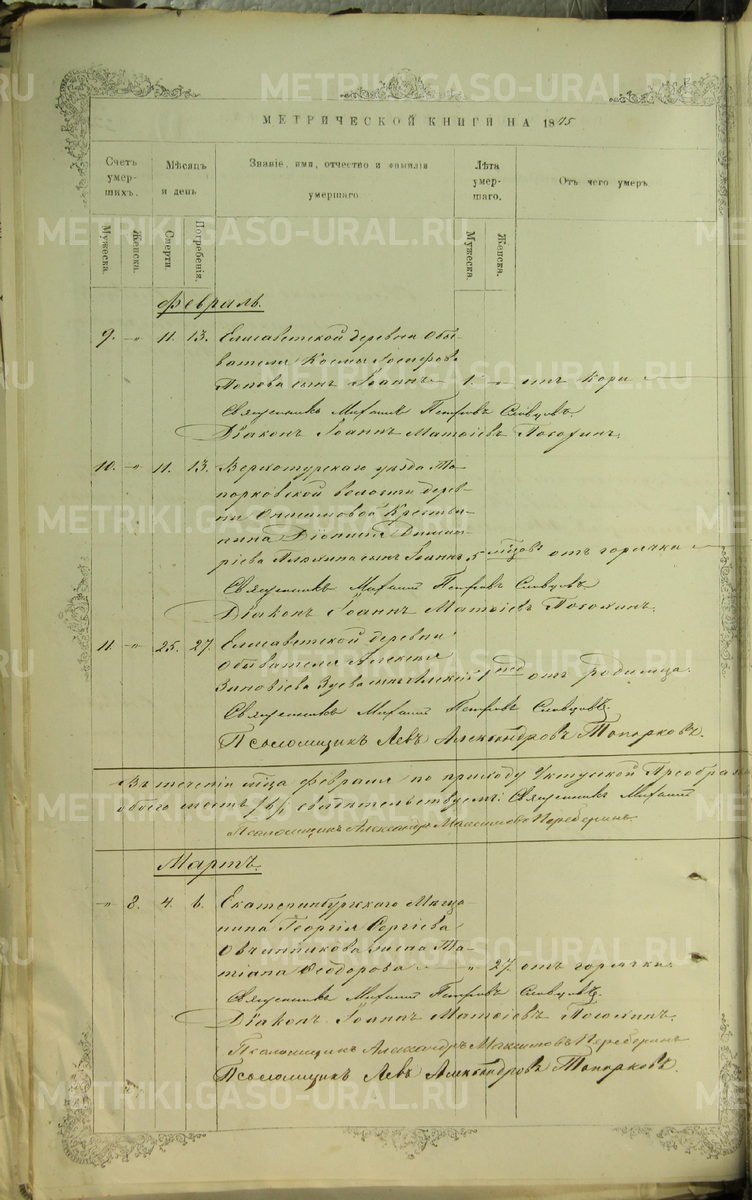 METRIKI.GASO-URAL.RU
МЕТРИЧЕСКОЙ КНИГИ НА 18
Счетъ умершихъ.
Мѣсяцъ и день
Званіе, имя, отчество и фамилія умершаго.
Лѣта умершаго.
Отъ чего умеръ.
Мужеска.
Женска.
Смерти.
Погребенія.
Мужеска.
Женска.
Февраль.
9. „ 11. 13. Елисаветской деревни Обы-
вателя Космы Іосифова
Попова сынъ Іоаннъ 1. „ отъ кори
Священникъ Михаилъ Петровъ Словцовъ.
Діаконъ Іоаннъ Матѳіевъ
10. „ 11. 13. Верхотурскаго уѣзда То-
порковской волости дерев-
ни Анисимовой Крестья-
нина Діонисія Димит-
ріева сынъ Іоаннъ 5 мѣсяцовъ отъ горячки
Священникъ Михаилъ Петровъ Словцовъ
Діаконъ Іоаннъ Матѳіевъ
11. „ 25. 27. Елисаветской деревни
Обывателя Алексія
Зиновіева Зуева сынъ Алексій 1 нед отъ родимца.
Священникъ Михаилъ Петровъ Словцовъ.
Псаломщикъ Левъ Александровъ Топорковъ.
Въ теченіи мѣсяца февраля по приходу Уктусской Преображ
обоего шесть /6/ свидѣтельствуемъ: Священникъ Михаилъ
Псаломщикъ Александръ Максимовъ Переберинъ
Мартъ.
„ 3. 4. 6. Екатеринбургскаго Мѣща-
нина Георгія Сергіева
Овчинникова жена Та-
тіана Ѳеодорова „ 27. отъ горячки.
Священникъ Михаилъ Петровъ Словцовъ.
Діаконъ Іоаннъ Матѳіевъ
Псаломщикъ Александръ Максимовъ Переберинъ
Псаломщикъ Левъ Александровъ Топорковъ.